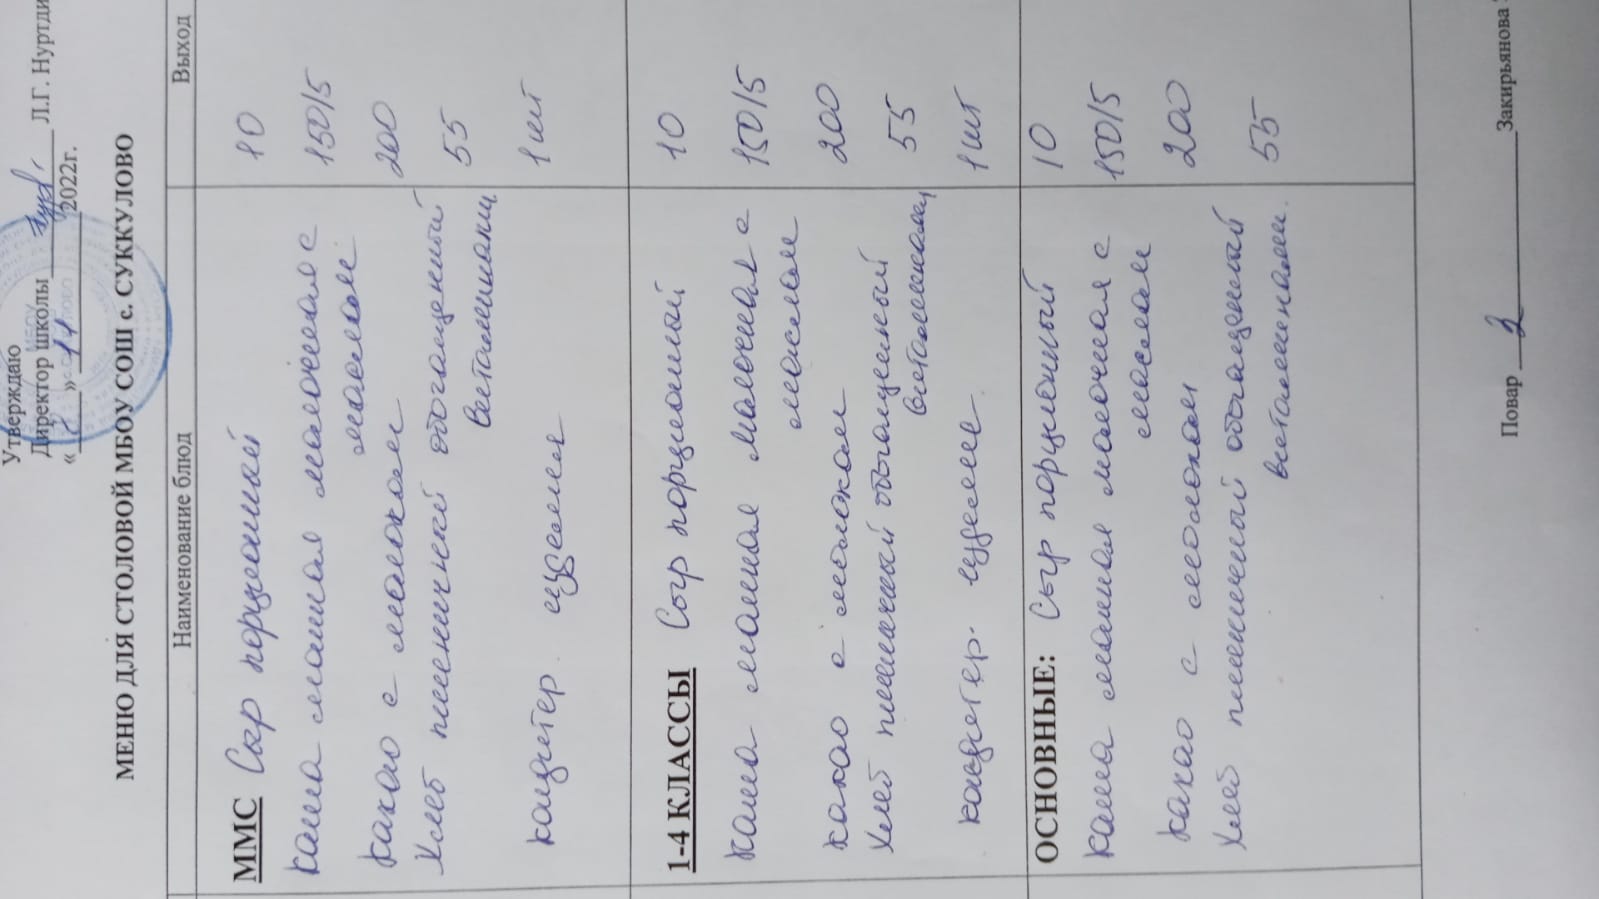 Утверждаю
Директор школы Л.Г. Нуртди
« » 11 2022г.
МЕНЮ ДЛЯ СТОЛОВОЙ МБОУ СОШ с. СУККУЛОВО
Наименование блюд Выход
ММС Сыр порционный 10
Каша манная молочная с 150/5
маслом
Какао с молоком 200
Хлеб пшеничный обогащенный 55
витаминами
кондитер изделия 1 шт
1-4 КЛАССЫ Сыр порционный 10
Каша манная молочная с 150/5
маслом
какао с молоком 200
Хлеб пшеничный обогащенный 55
витаминами
кондитер. изделие 1 шт
ОСНОВНЫЕ: Сыр порционный 10
Каша манная молочная с 150/5
маслом
какао с молоком 200
Хлеб пшеничный обогащенный 55
витаминами.
Повар Закирьянова